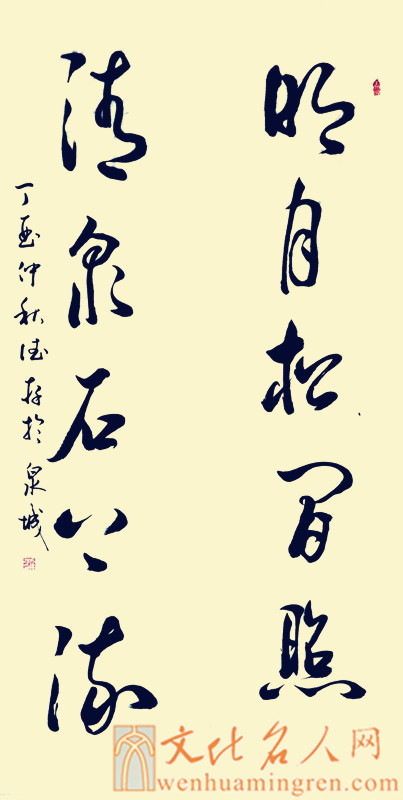 明月松间照
清泉石上流
丁酉仲秋德存於泉城
文化名人网
wenhuamingren.com